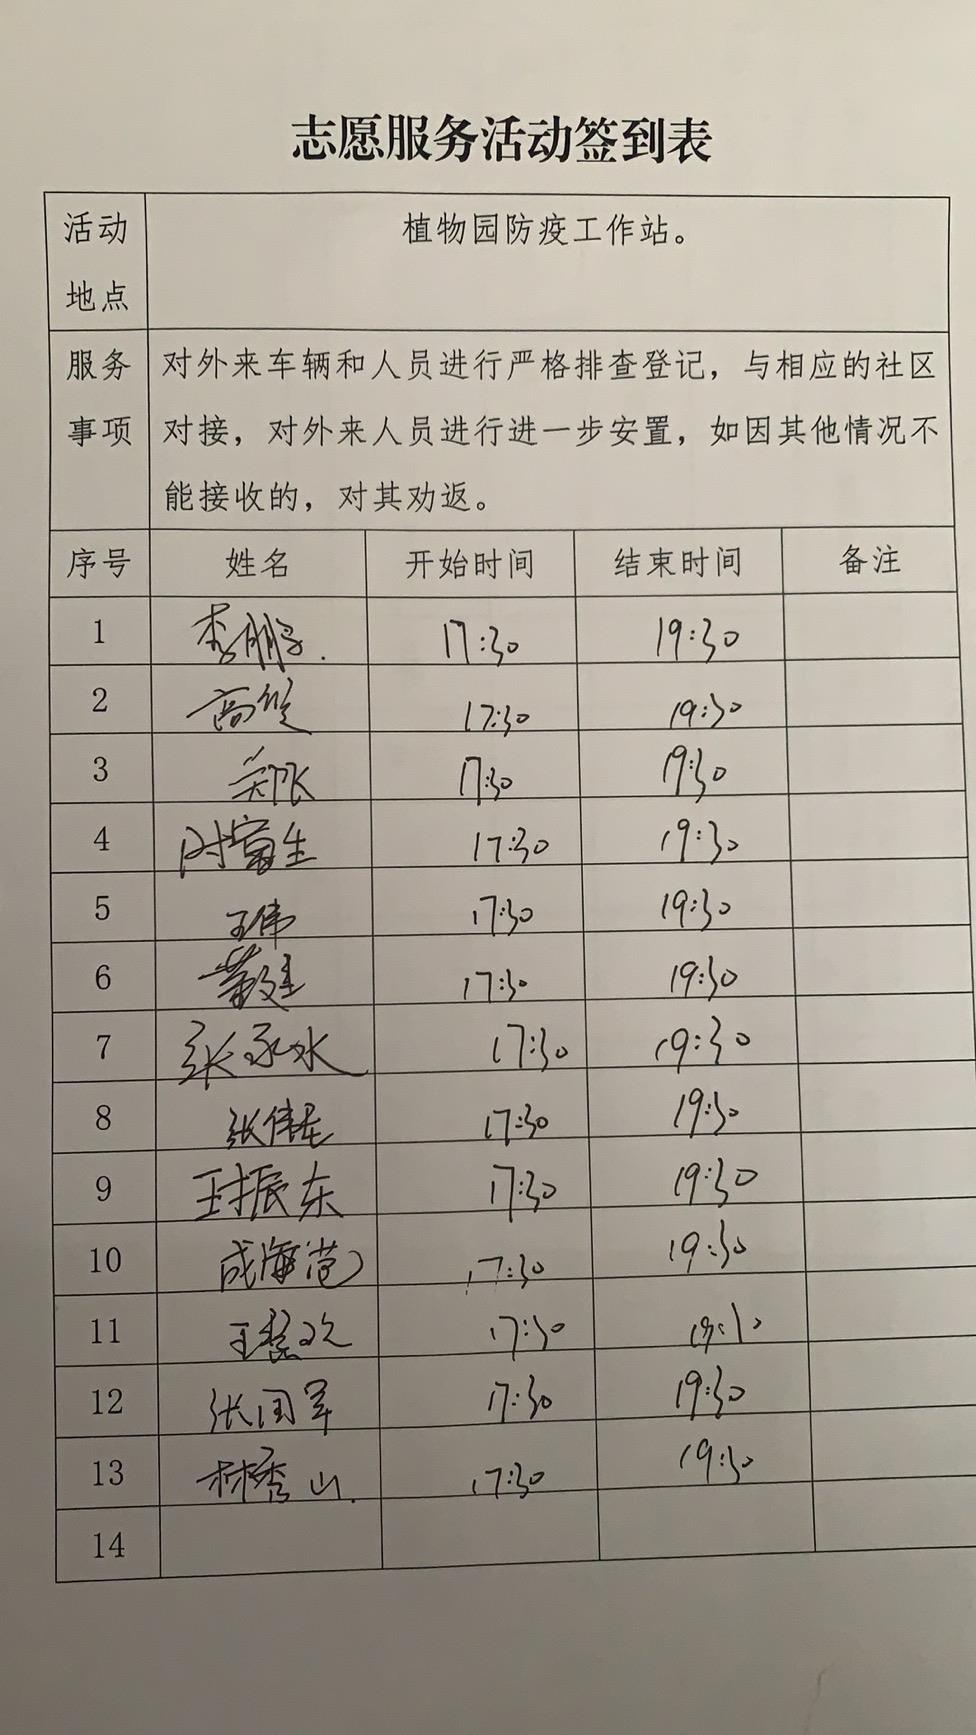 志愿服务活动签到表
活动地点 植物园防疫工作站。
服务事项 对外来车辆和人员进行严格排查登记，与相应的社区
对接，对外来人员进行进一步安置，如因其他情况不
能接收的，对其劝返。
序号 姓名 开始时间 结束时间 备注
1 李鹏 17:30 19:30
2 高 17:30 19:30
3 17:30 19:30
4 时富生 17:30 19:30
5 王伟 17:30 19:30
6 17:30 19:30
7 张永水 17:30 19:30
8 张伟 17:30 19:30
9 王振东 17:30 19:30
10 成海 17:30 19:30
11 王 17:30
12 张国军 17:30 19:30
13 林秀山 17:30 19:30
14